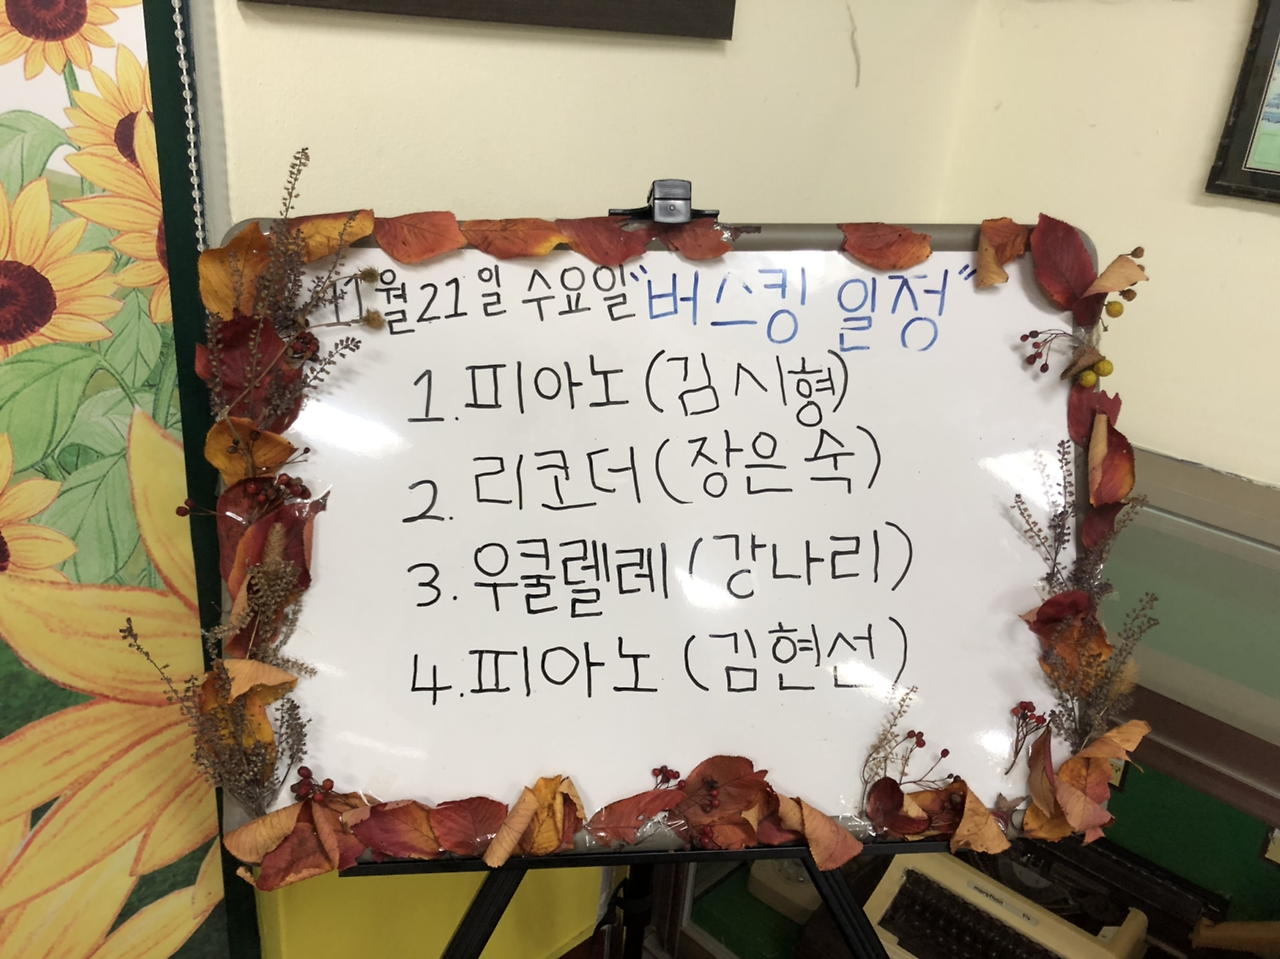 11월 21일 수요일 "버스킹 일정"
1. 피아노 (김시형)
2. 리코더 (장은숙)
3. 우쿨렐레 (강나리)
4. 피아노 (김현선)